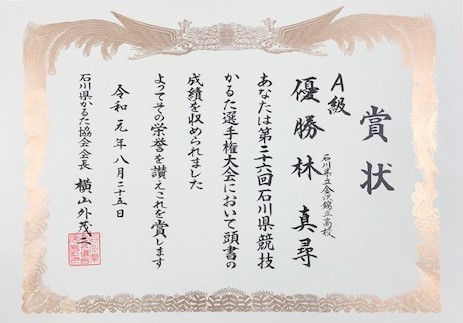 賞状
A級
石川県立金沢錦丘高校
優勝 林 真尋
あなたは第二十六回石川県競技
かるた選手権大会において頭書の
成績を収められました
よってその栄誉を讃えこれを賞します
令和元年八月二十五日
石川県かるた協会会長 横山外茂二